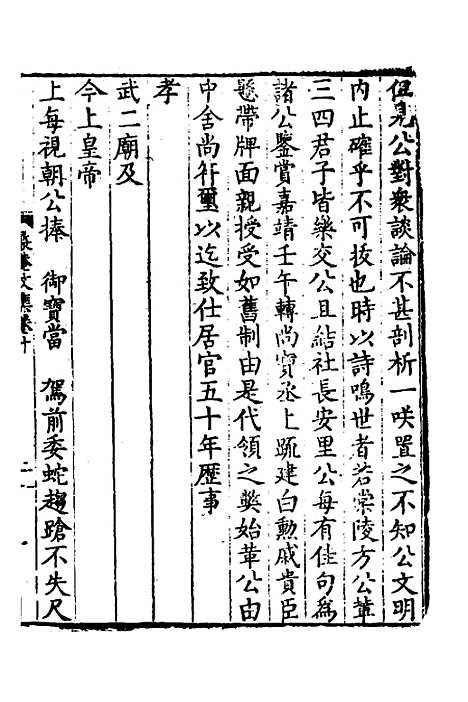 但見公對衆談論不甚剖析一咲置之不知公文明
内止確乎不可拔也時以詩鳴世者若棠陵方公輩
三四君子皆樂交公且結社長安里公每有佳句爲
諸公鑒賞嘉靖壬午轉尚寶丞上疏建白勲戚貴臣
懸帶牌面親授受如舊制由是代領之獘始革公由
中舍尚符璽以迄致仕居官五十年歷事
孝
武二廟及
今上皇帝
上每視朝公捧　御寶當　駕前委蛇趨蹌不失尺
文集卷十